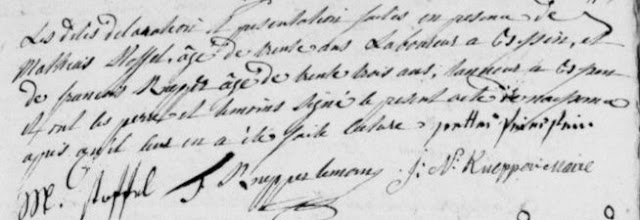 Les dites déclaration et présentation faites en présence de
Mathias Stoffel, âgé de trente ans Laboureur a et
de francois Rupp âgé de trente trois ans, tanneur a
et ont les pere et temoins signé le présent acte de naissance
apres qu'il leur en a été faite lecture
M. Stoffel Ruepper temoin J. N. Rueppor Maire